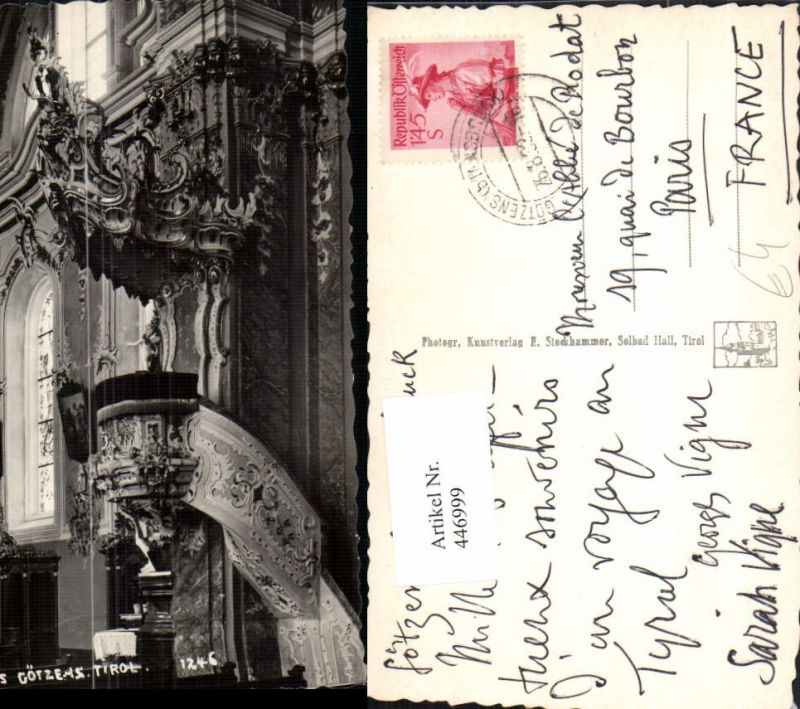 S GÖTZENS. TIROL. 1246
Republik Österreich
1.45
S
GÖTZENS
Monsieur l'Abbé de Rodat
19, quai de Bourbon
Paris
FRANCE
64
Photogr, Kunstverlag E. Stockhammer, Solbad Hall, Tirol
Artikel Nr.
446999
Mille
souvenirs
D'un voyage au
Tyrol
Georges Vigne
Sarah Vigne